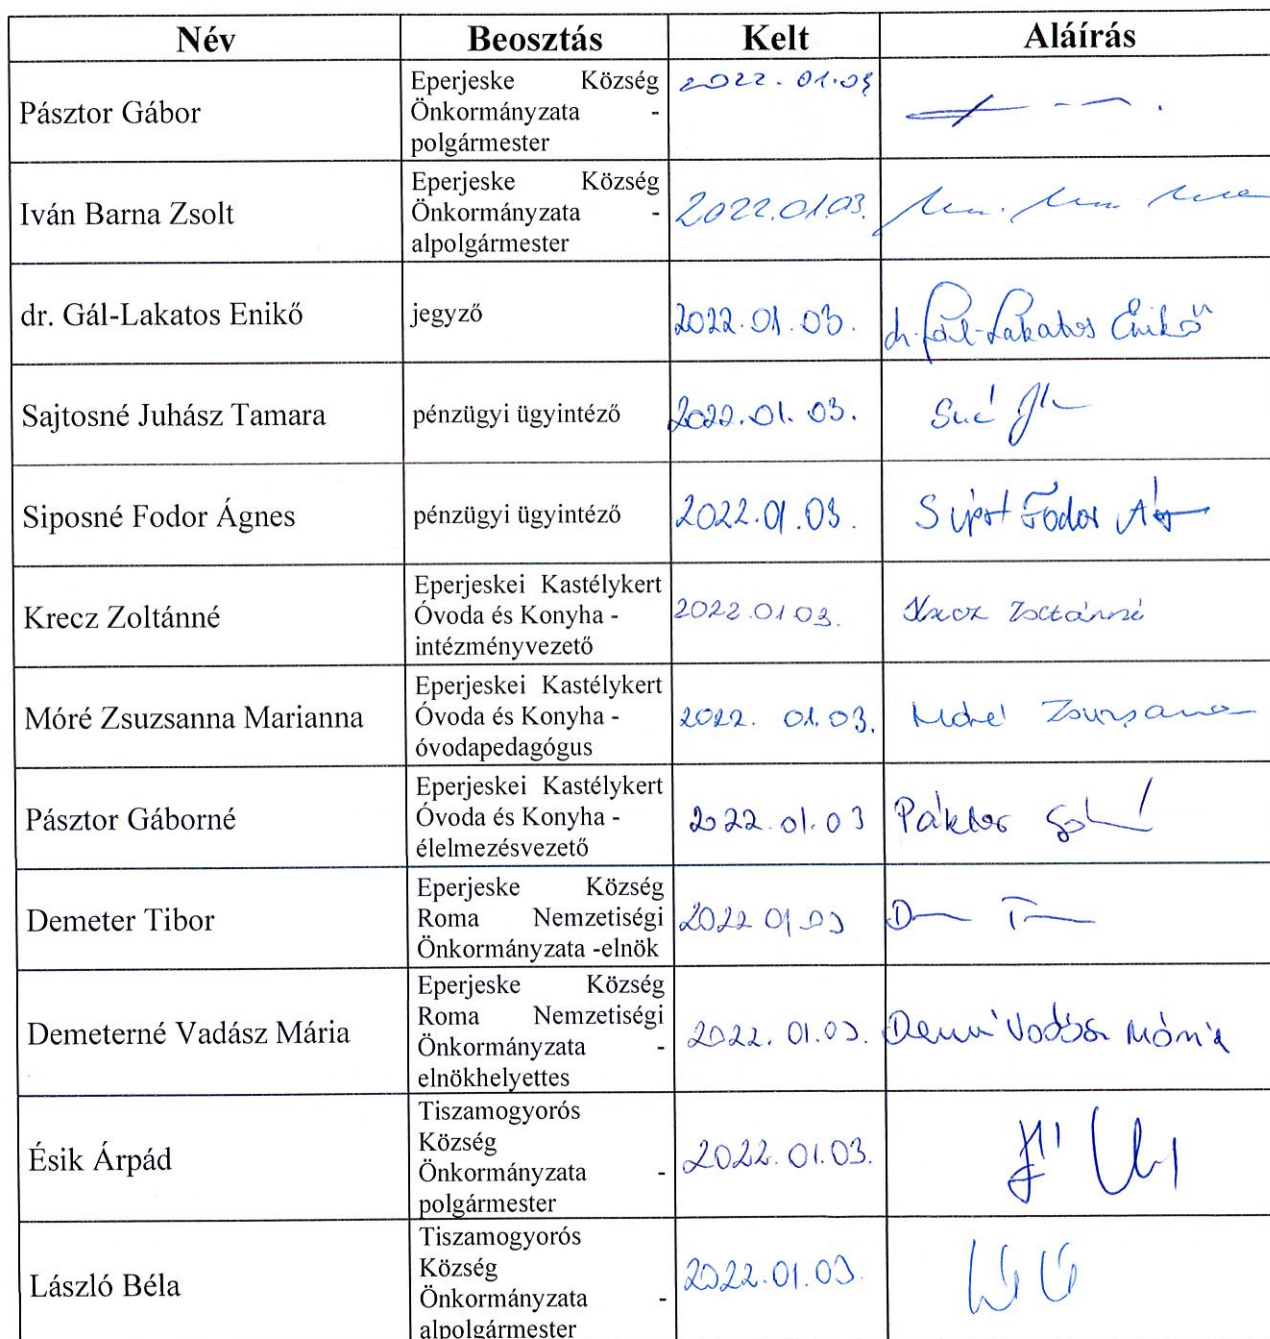 Név Beosztás Kelt Aláírás
Pásztor Gábor
Eperjeske Község
Önkormányzata -
polgármester
2022. 01.03
Iván Barna Zsolt
Eperjeske Község
Önkormányzata -
alpolgármester
2022.01.03.
dr. Gál-Lakatos Enikő
jegyző
2022.01.03.
dr. Gál-Lakatos Enikő
Sajtosné Juhász Tamara
pénzügyi ügyintéző
2022.01.03.
Siposné Fodor Ágnes
pénzügyi ügyintéző
2022.01.03.
Fodor
Krecz Zoltánné
Eperjeskei Kastélykert
Óvoda és Konyha -
intézményvezető
2022.01.03.
Krecz Zoltánné
Móré Zsuzsanna Marianna
Eperjeskei Kastélykert
Óvoda és Konyha -
óvodapedagógus
2022. 01.03.
Móré Zsuzsanna
Pásztor Gáborné
Eperjeskei Kastélykert
Óvoda és Konyha -
élelmezésvezető
2022.01.03
Pásztor
Demeter Tibor
Eperjeske Község
Roma Nemzetiségi
Önkormányzata -elnök
2022 01 03
Demeterné Vadász Mária
Eperjeske Község
Roma Nemzetiségi
Önkormányzata -
elnökhelyettes
2022. 01.03.
Vadász Mária
Ésik Árpád
Tiszamogyorós
Község
Önkormányzata -
polgármester
2022. 01.03.
László Béla
Tiszamogyorós
Község
Önkormányzata -
alpolgármester
2022.01.03.